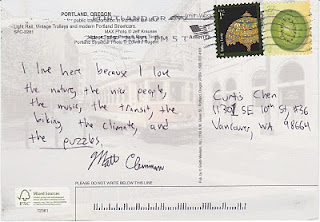 PORTLAND, OREGON
Light Rail, Vintage Trolleys and modern Portland Streetcars.
SPC-0281
MAX Photo © Jeff Krausse
PORTLAND OR
I live here because I love
the nature, the nice people,
the music, the transit, the
biking, the climate, and
the puzzles.
Matt Cleinman
Curtis Chen
11301 SE 10th St, #36
Vancouver, WA
98664
PLEASE DO NOT WRITE BELOW THIS LINE
FSC
Mixed Sources